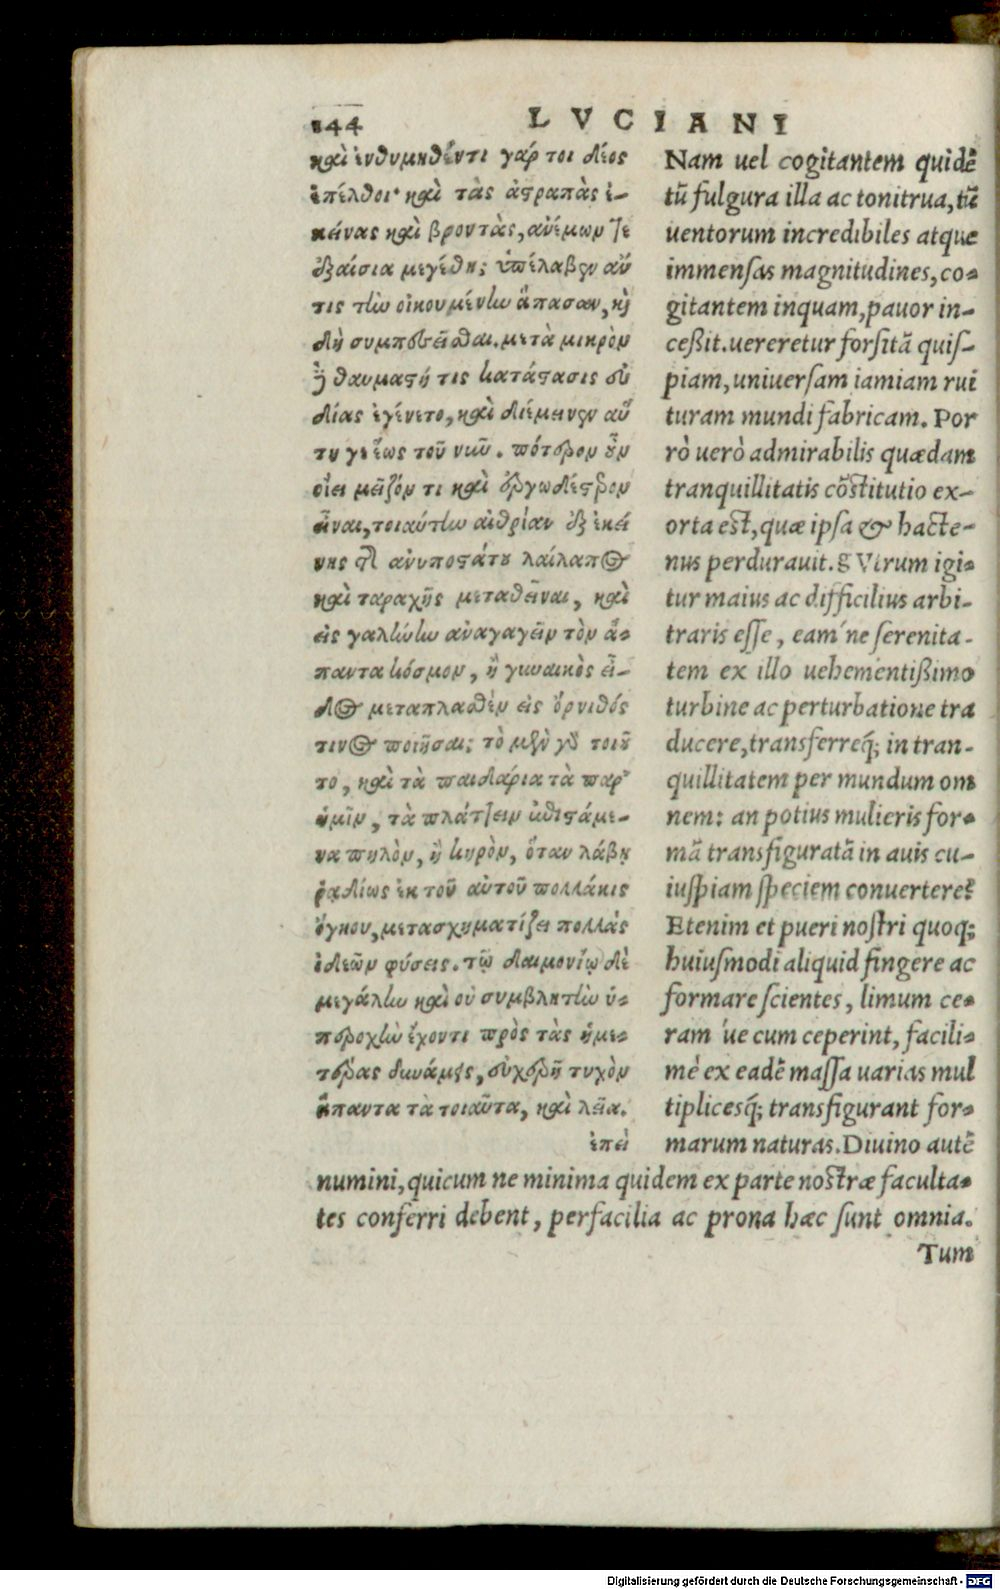 144
LVCIANI
καὶ ἐνθυμηθέντι γάρ τοι δέος
ἐπέλθοι· καὶ τὰς ἀστραπὰς ἐ-
κείνας καὶ βροντὰς, ἀνέμων τε
ἐξαίσια μεγέθη; ὑπέλαβεν ἄν
τις τὴν οἰκουμένην ἅπασαν, καὶ
δὴ συμπεσεῖσθαι. μετὰ μικρὸν
ἢ θαυμαστή τις κατάστασις εὐ
δίας ἐγένετο, καὶ διέμεινεν αὕ
τη γε ἕως τοῦ νῦν. πότερον οὖν
οἴει μεῖζόν τι καὶ ἐργωδέστερον
εἶναι, τοιαύτην αἰθρίαν ἐξ ἐκεί
νης τῆς ἀνυποστάτου λαίλαπος
καὶ ταραχῆς μεταθεῖναι, καὶ
εἰς γαλήνην ἀναγαγεῖν τὸν ἅ-
παντα κόσμον, ἢ γυναικὸς εἶ-
δος μεταπλασθὲν εἰς ὄρνιθός
τινος ποιῆσαι; τὸ μὲν γὰρ τοιοῦ
το, καὶ τὰ παιδάρια τὰ παρ'
ἡμῖν, τὰ πλάττειν ἐπιστάμε-
να πηλὸν, ἢ κηρὸν, ὅταν λάβῃ
ῥᾳδίως ἐκ τοῦ αὐτοῦ πολλάκις
ὄγκου, μετασχηματίζει πολλὰς
ἰδεῶν φύσεις. τῷ δαιμονίῳ δὲ
μεγάλην καὶ οὐ συμβλητὴν ὑ-
περοχὴν ἔχοντι πρὸς τὰς ἡμε-
τέρας δυνάμεις, εὐχερῆ τυχὸν
ἅπαντα τὰ τοιαῦτα, καὶ λεῖα.
ἐπεὶ
Nam uel cogitantem quidē
tū fulgura illa ac tonitrua, tū
uentorum incredibiles atque
immensas magnitudines, co-
gitantem inquam, pauor in-
ceßit. uereretur forsitā quis-
piam, uniuersam iamiam rui
turam mundi fabricam. Por
rò uerò admirabilis quædam
tranquillitatis cōstitutio ex-
orta est, quæ ipsa & hacte-
nus perdurauit. g Vtrum igi-
tur maius ac difficilius arbi-
traris esse, eam´ne serenita-
tem ex illo uehementißimo
turbine ac perturbatione tra
ducere, transferreq́; in tran-
quillitatem per mundum om
nem: an potius mulieris for-
mā transfiguratā in auis cu-
iuspiam speciem conuertere?
Etenim et pueri nostri quoq;
huiusmodi aliquid fingere ac
formare scientes, limum ce-
ram´ue cum ceperint, facili-
mè ex eadē massa uarias mul
tiplicesq́; transfigurant for-
marum naturas. Diuino autē
numini, quicum ne minima quidem ex parte nostræ faculta-
tes conferri debent, perfacilia ac prona hæc sunt omnia.
Tum
Digitalisierung gefördert durch die Deutsche Forschungsgemeinschaft - DFG